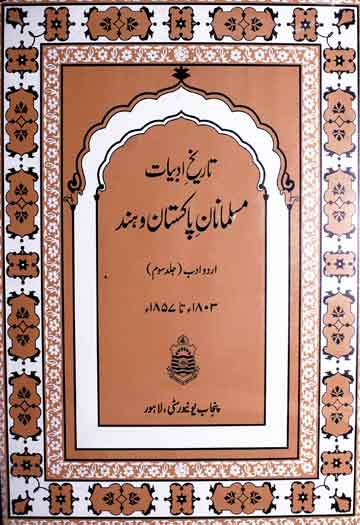 تاریخ ادبیات
مسلمانانِ پاکستان و ہند
اردو ادب (جلد سوم)
۱۸۰۳ء تا ۱۸۵۷ء
پنجاب یونیورسٹی، لاہور